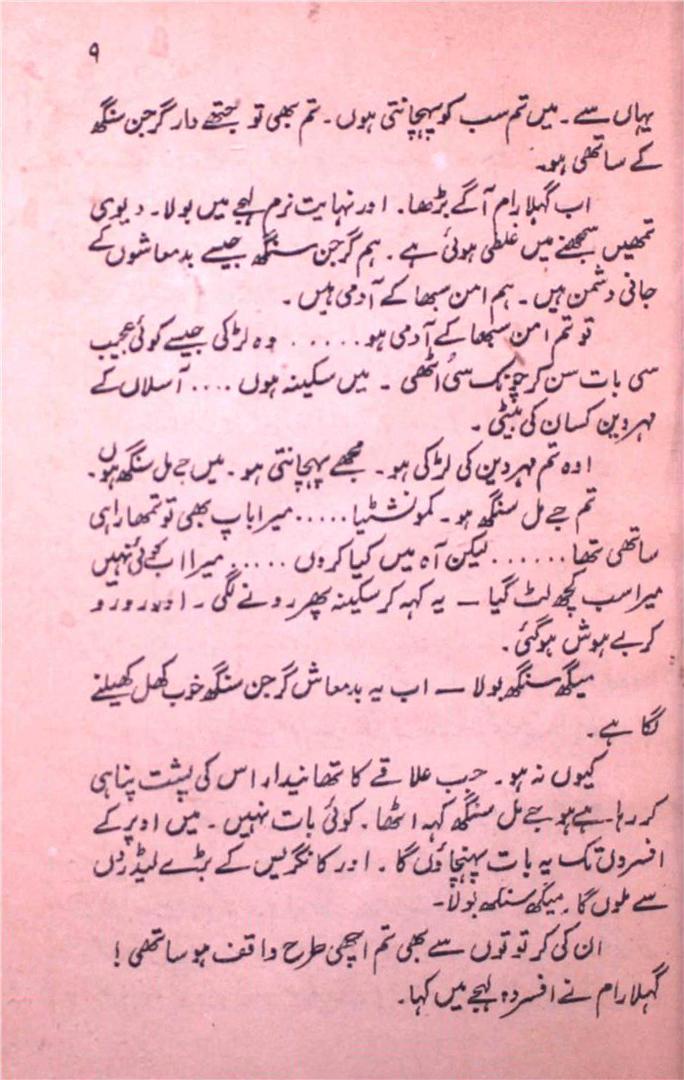 ۹
یہاں سے ۔ میں تم سب کو پہچانتی ہوں ۔ تم بھی تو جتھے دار گرجن سنگھ
کے ساتھی ہو۔
اب گہلا رام آگے بڑھا ۔ اور نہایت نرم لہجے میں بولا ۔ دیوی
تمھیں سمجھنے میں غلطی ہوئی ہے ۔ ہم گرجن سنگھ جیسے بدمعاشوں کے
جانی دشمن ہیں ۔ ہم امن سبھا کے آدمی ہیں ۔
تو تم امن سبھا کے آدمی ہو ...... وہ لڑکی جیسے کوئی عجیب
سی بات سن کر چونک سی اٹھی ۔ میں سکینہ ہوں .... آسلاں کے
مہر دین کسان کی بیٹی ۔
اوہ تم مہر دین کی لڑکی ہو ۔ مجھے پہچانتی ہو ۔ میں جے مل سنگھ ہوں ۔
تم جے مل سنگھ ہو ۔ کمونشٹیا ..... میرا باپ بھی تو تمھارا ہی
ساتھی تھا ...... لیکن آہ میں کیا کروں ..... میرا اب کوئی نہیں
میرا سب کچھ لٹ گیا ــ یہ کہہ کر سکینہ پھر رونے لگی ۔ اور رو رو
کر بے ہوش ہوگئی ۔
میگھ سنگھ بولا ــ اب یہ بدمعاش گرجن سنگھ خوب کھل کھیلنے
لگا ہے ۔
کیوں نہ ہو ۔ جب علاقے کا تھانیدار اس کی پشت پناہی
کر رہا ہے ہو جے مل سنگھ کہہ اٹھا ۔ کوئی بات نہیں ۔ میں اوپر کے
افسروں تک یہ بات پہنچاؤں گا ۔ اور کانگریس کے بڑے لیڈروں
سے ملوں گا ۔ میگھ سنگھ بولا ۔
ان کی کرتوتوں سے بھی تم اچھی طرح واقف ہو ساتھی !
گہلا رام نے افسردہ لہجے میں کہا ۔